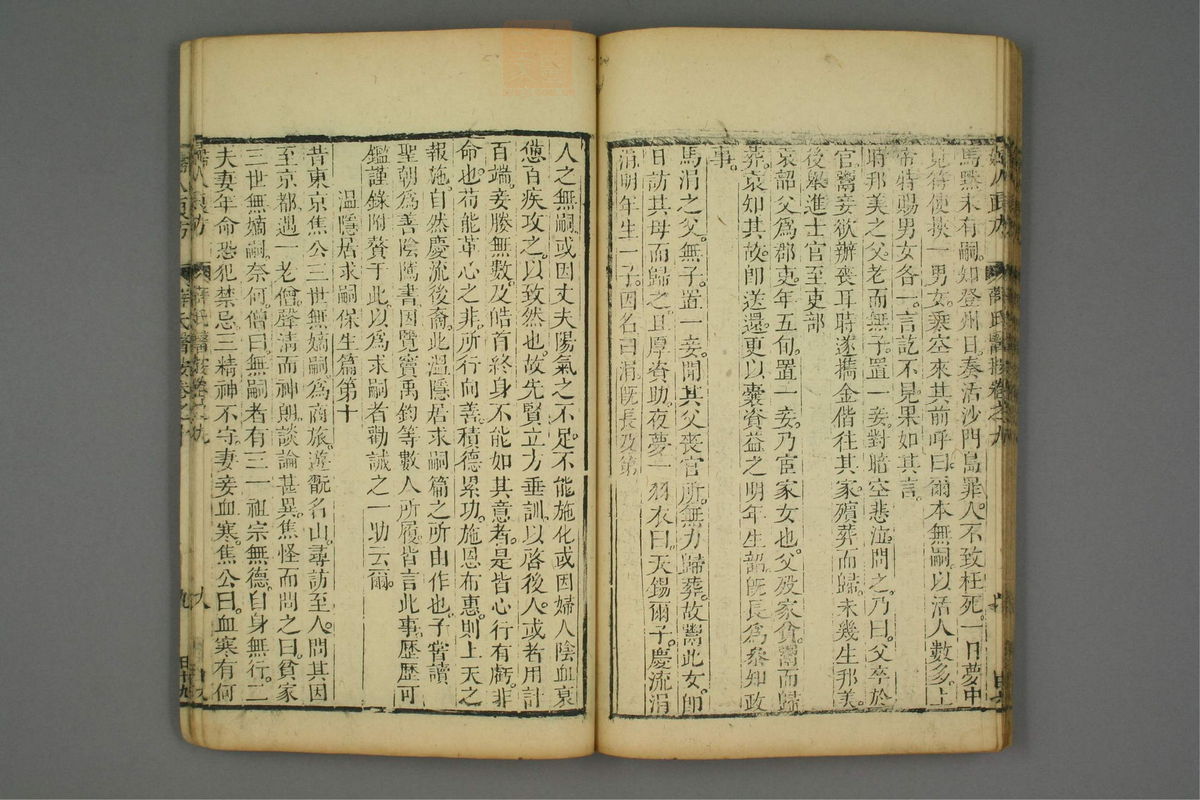 馬默未有嗣。知登州日奏活沙門島罪人不致枉死。一日夢中
見符使挾一男女。乘空來其前呼曰。爾本無嗣。以活人數多。上
帝特賜男女各一。言訖不見。果如其言。
時邦美之父。老而無子。置一妾。對暗空悲泣。問之。乃曰。父卒於
官。鬻妾欲辦喪耳。時遂攜金偕往其家殯葬而歸。未幾生邦美。
後舉進士官至吏部
袁韶父爲郡吏。年五旬。置一妾。乃宦家女也。父歿家貧。鬻而歸
葬。袁知其故。卽送還。更以囊資益之。明年生韶。旣長爲參知政
事。
馬涓之父。無子。置一妾。聞其父喪官所。無力歸葬。故鬻此女。卽
日訪其母而歸之。且厚資助。夜夢一羽衣曰。天錫爾子。慶流涓
涓。明年生一子。因名曰涓。旣長及第
人之無嗣。或因丈夫陽氣之不足。不能施化。或因婦人陰血衰
憊。百疾攻之。以致然也。故先賢立方垂訓。以啓後人。或者用計
百端。妾媵無數。及皓首終身。不能如其意者。是皆心行有虧。非
命也。苟能革心之非。所行向善。積德累功。施恩布惠。則上天之
報施。自然慶流後裔。此溫隱居求嗣篇之所由作也。予嘗讀
聖朝爲善陰隲書。因覽竇禹鈞等數人所履。皆言此事歷歷可
鑑。謹錄附贅于此。以爲求嗣者勸誡之一助云爾。
溫隱居求嗣保生篇第十
昔東京焦公。三世無嫡嗣。爲商旅。遊翫名山。尋訪至人。問其因
至京都遇一老僧。聲淸而神朗。談論甚異。焦怪而問之曰。貧家
三世無嫡嗣。奈何。僧曰。無嗣者有三。一祖宗無德。自身無行。二
夫妻年命。恐犯禁忌。三精神不守。妻妾血寒。焦公曰。血寒有何
婦人良方
薛氏醫按卷之九